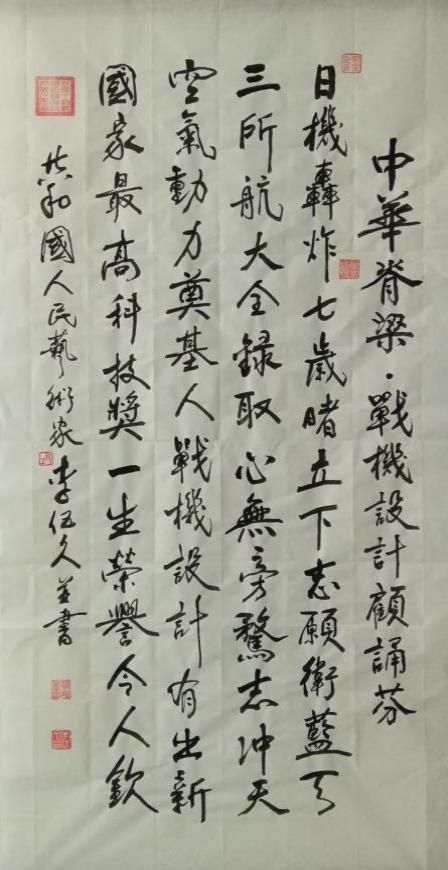 中華脊梁·戰機設計顧誦芬
日機轟炸七歲睹立下志願衛藍天
三所航大全錄取心無旁騖志冲天
空氣動力奠基人戰機設計有出新
國家最高科技獎一生榮譽令人欽
共和國人民藝術家李伍久並書